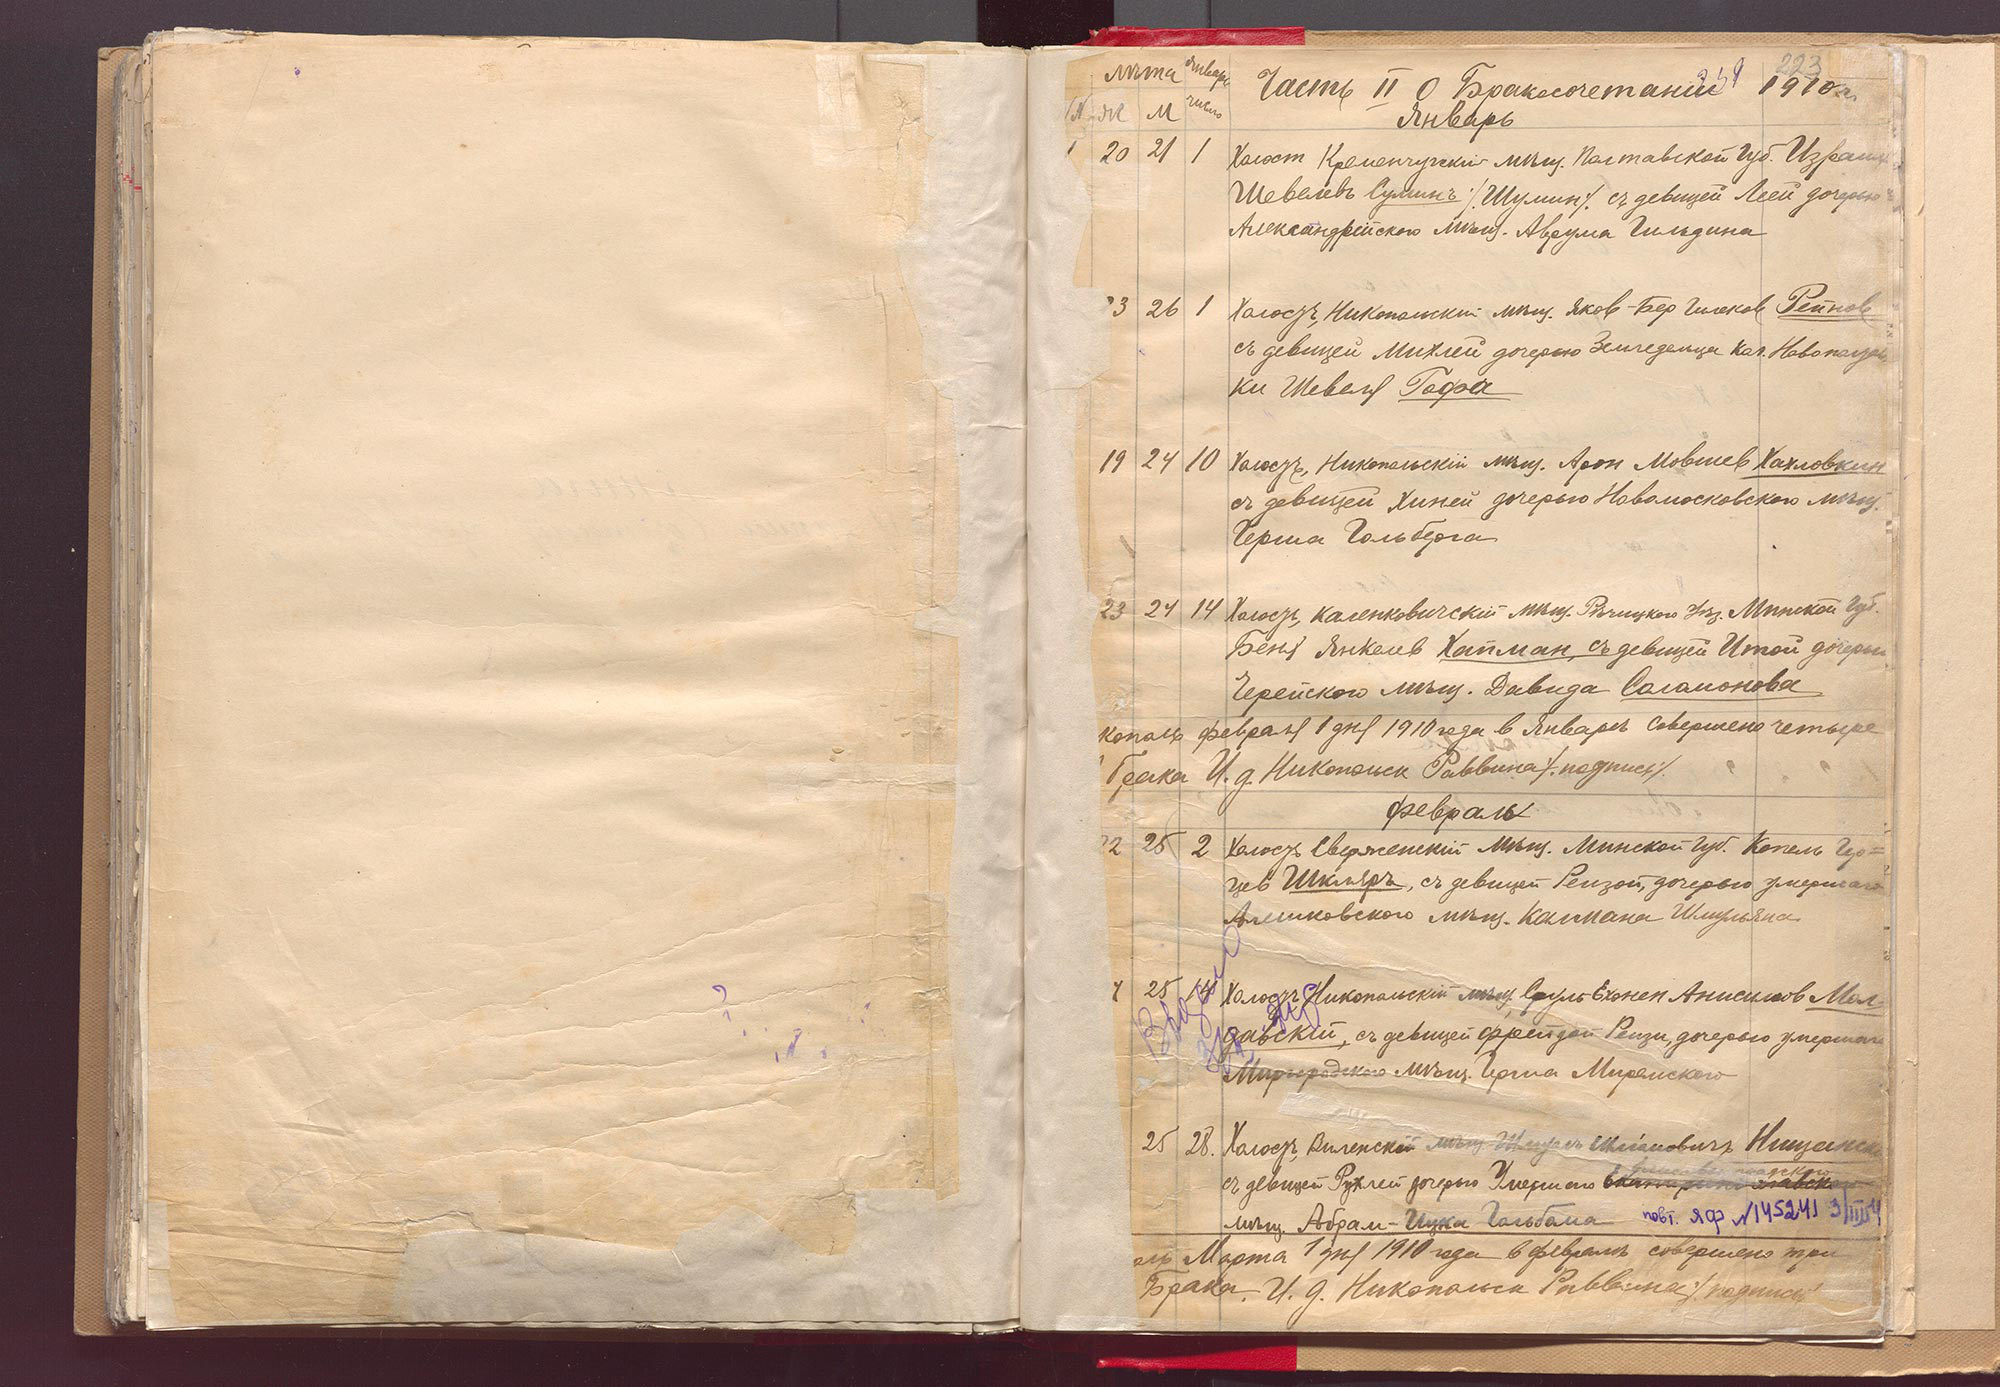 223
лѣта Январь Часть II О Бракосочетаніи 1910 г.
№ Ж М число Январь
1 20 21 1 Холост Кременчугскій мѣщ. Полтавской Губ.
Шевелевъ Суминъ /:Шумин:/ съ девицей Леей дочерью
Александрійского мѣщ. Аврума Гильдина
23 26 1 Холостъ, Никопольскій мѣщ. Яков-Бер Гилеков Рейнов
съ девицей Михлей дочерью Земледельца Кол. Новополтав
ки Шевеля Гофа
19 24 10 Холостъ, Никопольскій мѣщ. Арон Мовшев Хахловкин
съ девицей Хиней дочерью Новомосковского мѣщ.
Герша Гольберга
23 24 14 Холостъ, Каленковичскій мѣщ. Рѣчицкого Уѣз. Минской Губ.
Беня Янкелев Хайман, съ девицей Итой дочерью
Черейского мѣщ. Давида Соломонова
кополь Февраля 1 дня 1910 года в Январѣ совершено четыре
брака И. д. Никопольск Раввина /:подпись:/
Февраль
22 25 2 Холостъ Сверженскій мѣщ. Минской Губ. Копель
Шкляръ, съ девицей Рейзой, дочерью умершаго
Алешковского мѣщ. Калмана Шмульяна
25 14 Холостъ Никопольскій мѣщ. Сруль Ехонен Анисимов Мол-
давскій, съ девицей Фрейдой Рейзи, дочерью умершаго
Миргородского мѣщ. Герша Миремского
Выдано
25 28. Холостъ, Виленскій мѣщ. Шмуель
съ девицей Рухлей дочерью Умершаго
мѣщ. Абрам-Ицка Гольбама повт. ЯФ №145241 3/III
Марта 1 дня 1910 года в Февралѣ совершено три
Брака. И. д. Никопольск Раввина /:подпись:/